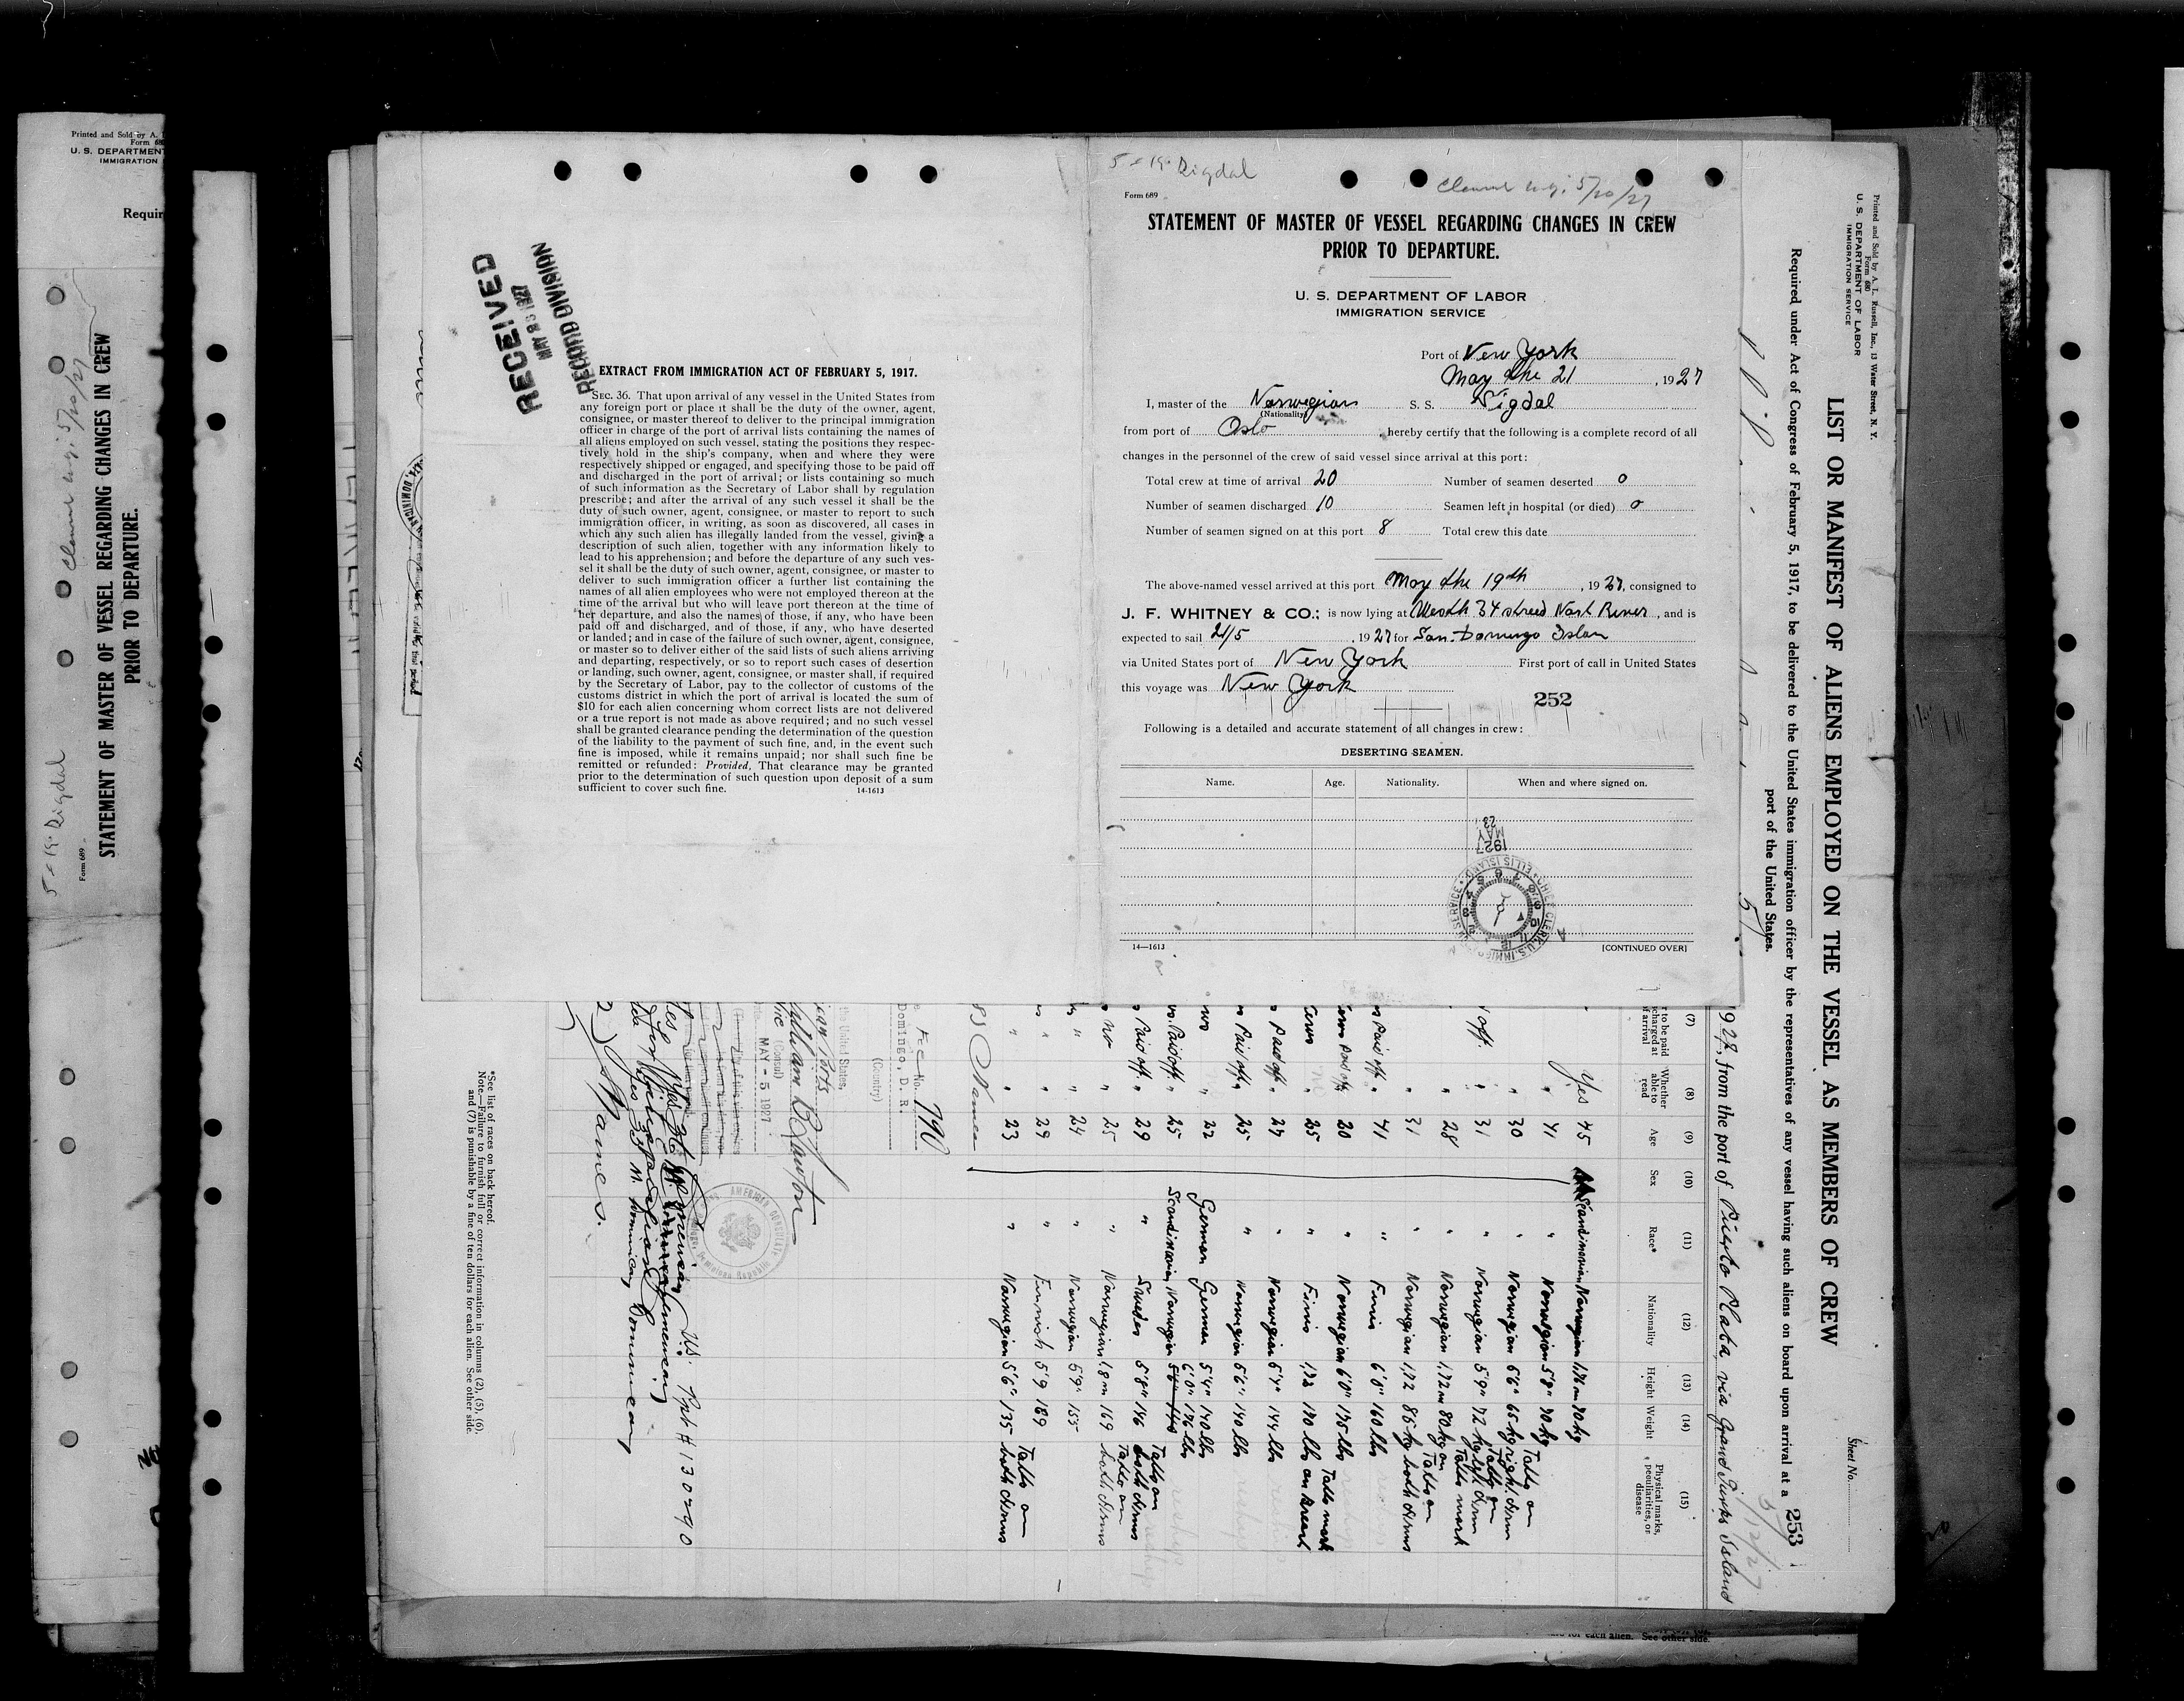 Printed and Sold by A.
Form 68
U. S. DEPARTMENT
IMMIGRATION
Requir
5-19 Sigdal
Form 689
STATEMENT OF MASTER OF VESSEL REGARDING CHANGES IN CREW
PRIOR TO DEPARTURE.
RECEIVED
MAY 25 1927
RECORD DIVISION
EXTRACT FROM IMMIGRATION ACT OF FEBRUARY 5, 1917.
SEC. 36. That upon arrival of any vessel in the United States from
any foreign port or place it shall be the duty of the owner, agent,
consignee, or master thereof to deliver to the principal immigration
officer in charge of the port of arrival lists containing the names of
all aliens employed on such vessel, stating the positions they respec-
tively hold in the ship's company, when and where they were
respectively shipped or engaged, and specifying those to be paid off
and discharged in the port of arrival; or lists containing so much
of such information as the Secretary of Labor shall by regulation
prescribe; and after the arrival of any such vessel it shall be the
duty of such owner, agent, consignee, or master to report to such
immigration officer, in writing, as soon as discovered, all cases in
which any such alien has illegally landed from the vessel, giving a
description of such alien, together with any information likely to
lead to his apprehension; and before the departure of any such ves-
sel it shall be the duty of such owner, agent, consignee, or master to
deliver to such immigration officer a further list containing the
names of all alien employees who were not employed thereon at the
time of the arrival but who will leave port thereon at the time of
her departure, and also the names of those, if any, who have been
paid off and discharged, and of those, if any, who have deserted
or landed; and in case of the failure of such owner, agent, consignee,
or master so to deliver either of the said lists of such aliens arriving
and departing, respectively, or so to report such cases of desertion
or landing, such owner, agent, consignee, or master shall, if required
by the Secretary of Labor, pay to the collector of customs of the
customs district in which the port of arrival is located the sum of
$10 for each alien concerning whom correct lists are not delivered
or a true report is not made as above required; and no such vessel
shall be granted clearance pending the determination of the question
of the liability to the payment of such fine, and, in the event such
fine is imposed, while it remains unpaid; nor shall such fine be
remitted or refunded: Provided, That clearance may be granted
prior to the determination of such question upon deposit of a sum
sufficient to cover such fine.
14-1613
5-19 Sigdal
5/20/27
Form 689
STATEMENT OF MASTER OF VESSEL REGARDING CHANGES IN CREW
PRIOR TO DEPARTURE.
U. S. DEPARTMENT OF LABOR
IMMIGRATION SERVICE
Port of New York
May the 21, 1927
I, master of the Norwegian S. S. Sigdal
(Nationality)
from port of Oslo hereby certify that the following is a complete record of all
changes in the personnel of the crew of said vessel since arrival at this port:
Total crew at time of arrival 20 Number of seamen deserted 0
Number of seamen discharged 10 Seamen left in hospital (or died) 0
Number of seamen signed on at this port 8 Total crew this date
The above-named vessel arrived at this port May the 19th, 1927, consigned to
J. F. WHITNEY & CO.; is now lying at Westh 34 streed Nort River, and is
expected to sail 21/5, 1927 for San. Domingo Islan
via United States port of New York First port of call in United States
this voyage was New York
252
Following is a detailed and accurate statement of all changes in crew:
DESERTING SEAMEN.
Name. Age. Nationality. When and where signed on.
1927
MAY
23
CHIEF CLERK, U.S. IMMIGRATION SERVICE ELLIS ISLAND
14—1613
[CONTINUED OVER]
Printed and Sold by A. L. Russell, Inc., 13 Water Street, N. Y.
Form 680
U. S. DEPARTMENT OF LABOR
IMMIGRATION SERVICE
Sheet No.
LIST OR MANIFEST OF ALIENS EMPLOYED ON THE VESSEL AS MEMBERS OF CREW
Required under Act of Congress of February 5, 1917, to be delivered to the United States immigration officer by the representatives of any vessel having such aliens on board upon arrival at a
port of the United States.
253
5/12/27
1927, from the port of Puerto Plata, via Grand Turks Island
(7) (8) (9) (10) (11) (12) (13) (14) (15)
to be paid
Whether able to read
Age
Sex
Race*
Nationality
Height
Weight
Physical marks, peculiarities, or disease
Yes 45 Scandinavian Norwegian 1,76 m 70 kg
" 41 " Norwegian 5'8" 70 kg
" 30 " Norwegian 5'6" 65 kg Tatto on right arm
off. " 31 " Norwegian 5'9" 72 kg Tatto on left arm
" 28 " Norwegian 1,72 m 80 kg Tatto mark
" 31 " Norwegian 1,72 86 kg Tatto on both arms
Paid off " 41 " Finis 6'0" 160 lbs
Paid off " 20 " Norwegian 6'0" 175 lbs
" 25 " Finis 1,72 170 lbs Tatto mark on breast
Paid off " 27 " Norwegian 5'7" 144 lbs
Paid off " 25 " Norwegian 5'6" 140 lbs
" 22 German German 5'4" 140 lbs
Paid off " 25 Scandinavian Norwegian 6'0" 176 lbs
Paid off " 29 " Sweden 5'8" 146 Tatto on both arms
no " 25 " Norwegian 1,8 m 169 Tatto on both arms
" 24 " Norwegian 5'9" 155
" 29 " Finnish 5'9 189
" 23 " Norwegian 5'6" 135 Tatto on both arms
Names
Fee No. 790
Domingo, D. R.
(Country)
the United States,
William B Lawton
(Consul)
MAY - 5 1927
AMERICAN CONSULATE
Dominican Republic
Yes 36 M. American U.S. Ppt # 130290
Yes 35 M. Dominican Dominican
Names.
*See list of races on back hereof.
Note.—Failure to furnish full or correct information in columns (2), (5), (6),
and (7) is punishable by a fine of ten dollars for each alien. See other side.
for each alien. See other side.